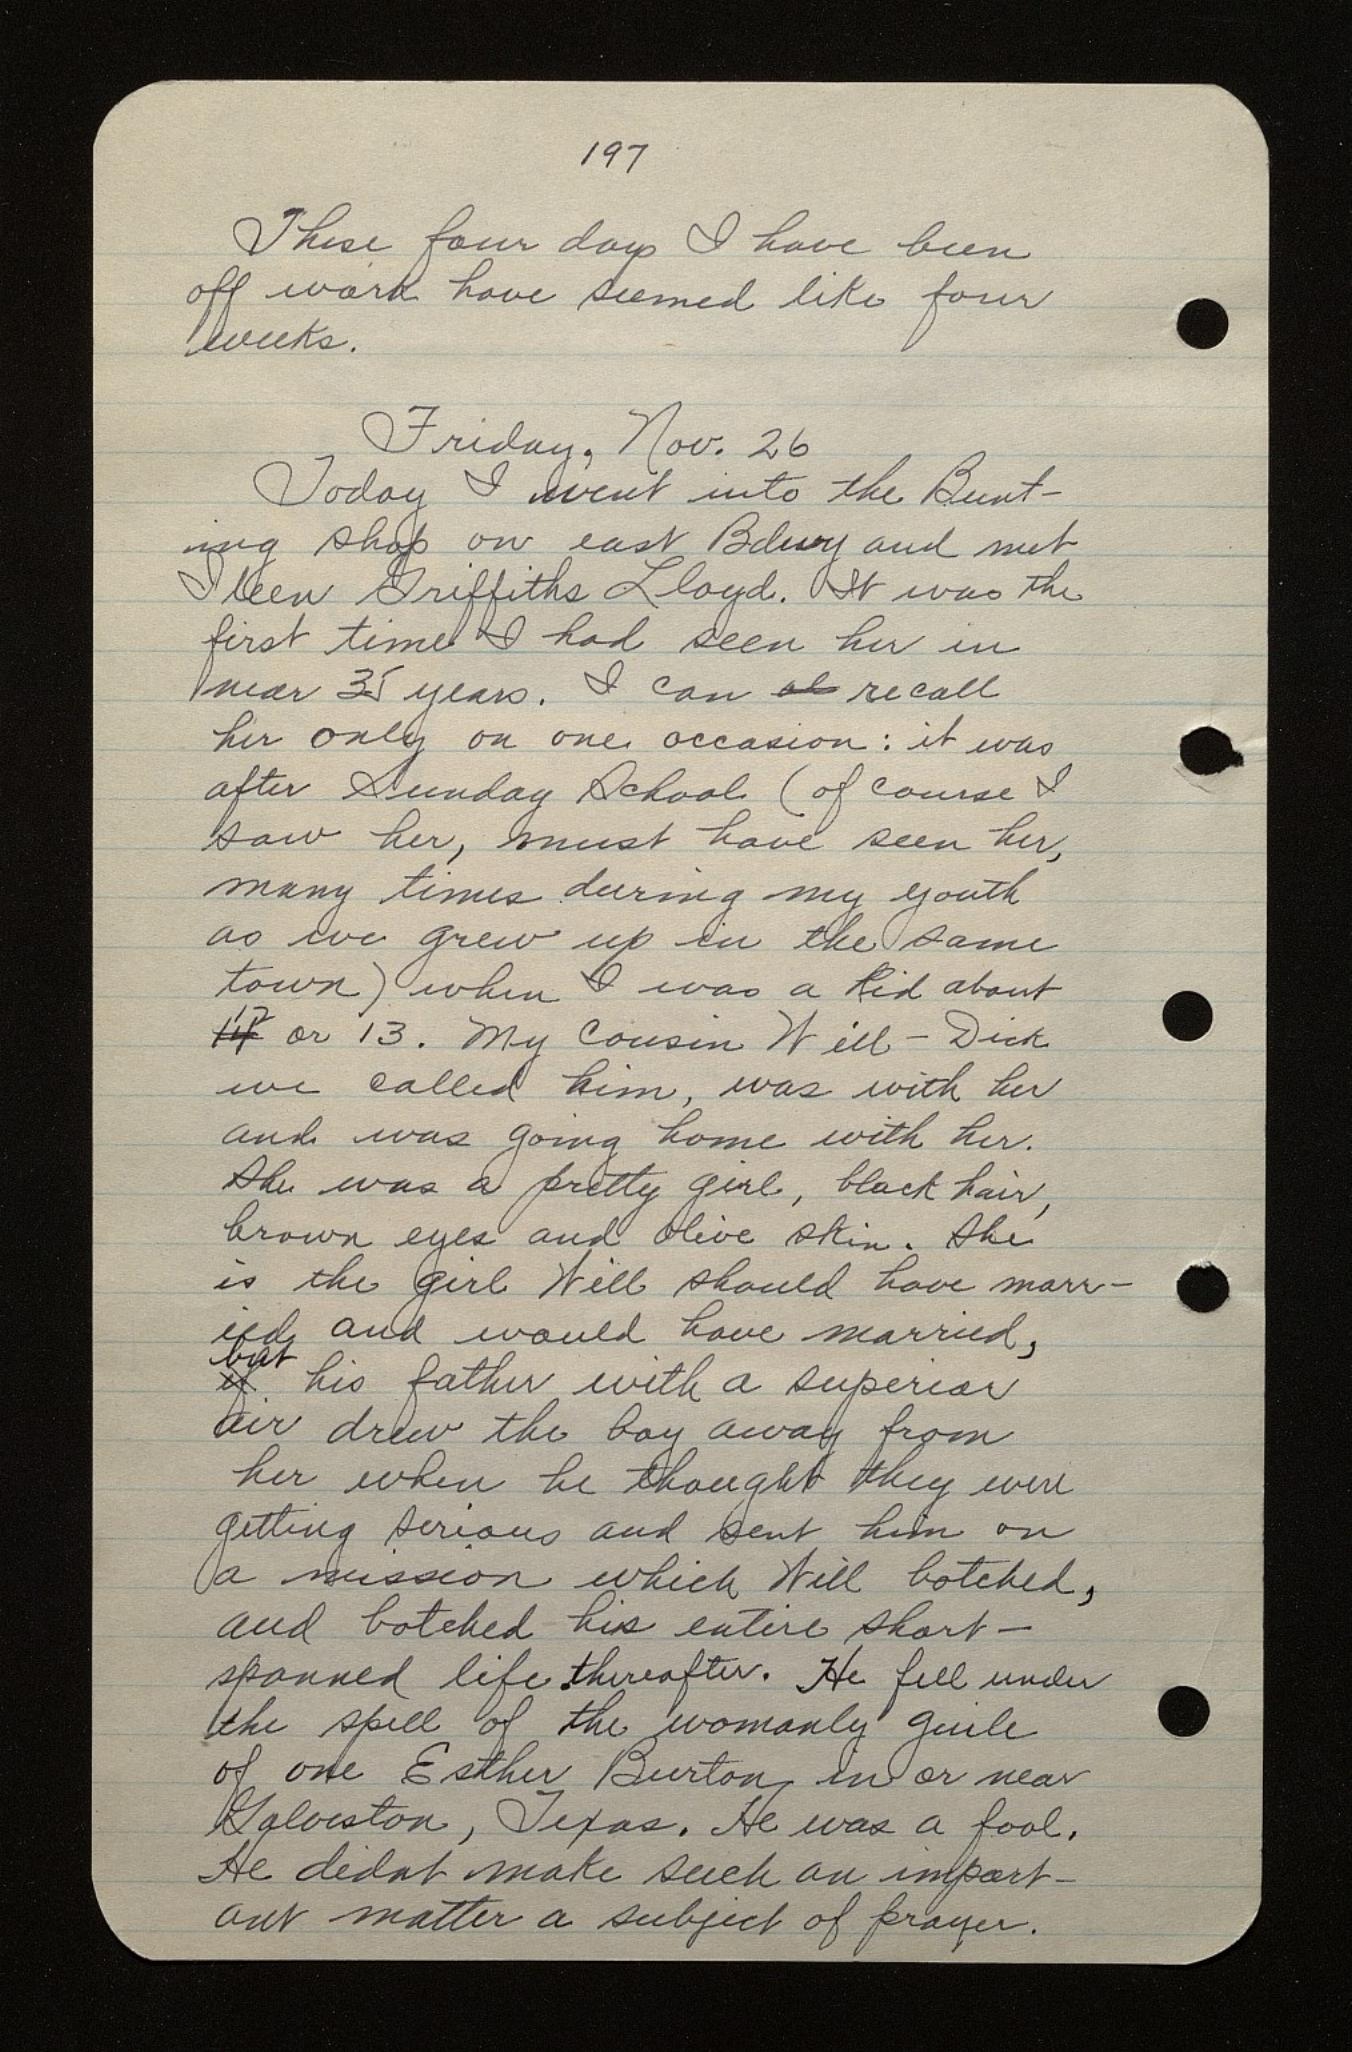 197
These four days I have been
off work have seemed like four
weeks.
Friday, Nov. 26
Today I went into the Bunt-
ing shop on east Bdwy and met
Ileen Griffiths Lloyd. It was the
first time I had seen her in
near 35 years. I can ab recall
her only on one occasion: it was
after Sunday School (of course I
saw her, must have seen her,
many times during my youth
as we grew up in the same
town) when I was a kid about
12 or 13. My Cousin Will - Dick
we called him, was with her
and was going home with her.
She was a pretty girl, black hair,
brown eyes and olive skin. She
is the girl Will should have marr-
ied, and would have married,
but
if his father with a superior
air drew the boy away from
her when he thought they were
getting serious and sent him on
a mission which Will botched,
and botched his entire short-
spanned life thereafter. He fell under
the spell of the womanly guile
of one Esther Burton, in or near
Galveston, Texas. He was a fool.
He didnt make such an import-
ant matter a subject of prayer.